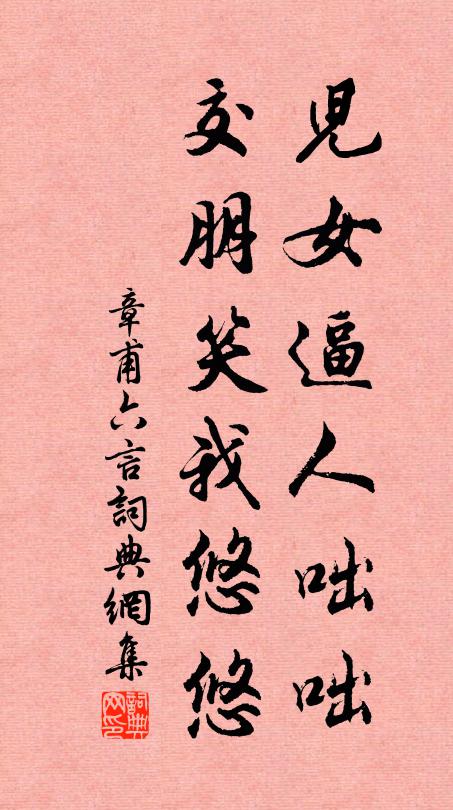 兒女逼人咄咄
交朋笑我悠悠
章甫六言詞典網集
詞典网印